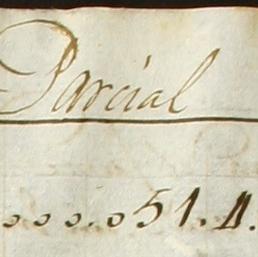 Parcial
o o o . o 51. 4.